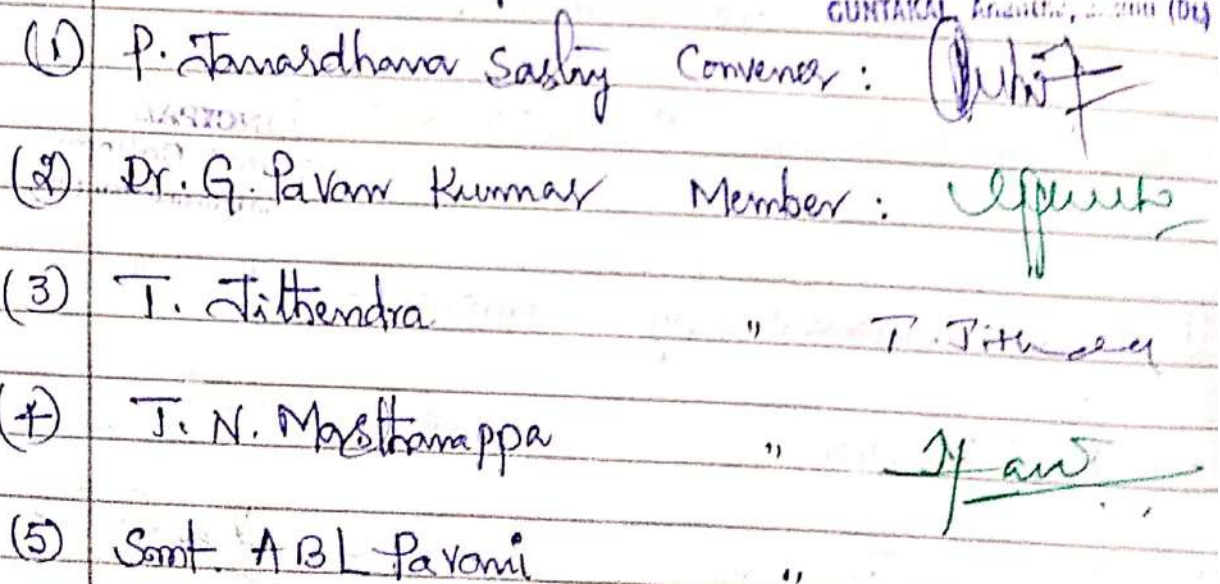 GUNTAKAL (Dt)
(1) P. Janardhana Sastry Convener :
(2) Dr. G. Pavan Kumar Member :
(3) T. Jithendra " T. Jithendra
(4) J. N. Masthanappa "
(5) Smt. A B L Pavani "